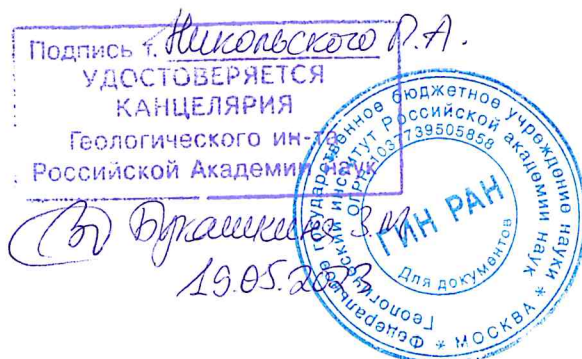 Подпись т. Никольского П.А.
УДОСТОВЕРЯЕТСЯ
КАНЦЕЛЯРИЯ
Геологического ин-та
Российской Академии наук
Букашкина З.М
19.05.2023
Федеральное государственное бюджетное учреждение науки
Геологический институт Российской академии наук
ОГРН 1037739505858
ГИН РАН
Для документов
* МОСКВА *